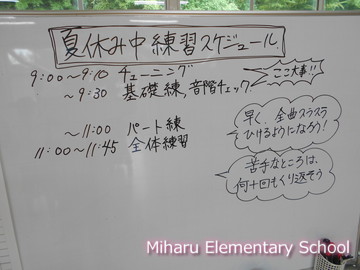 夏休み中練習スケジュール
9:00〜9:10 チューニング
ここ大事!!
〜9:30 基礎練,音階チェック
早く、全曲スラスラ
ひけるようになろう!
〜11:00 パート練
11:00〜11:45 全体練習
苦手なところは、
何十回もくり返そう
Miharu Elementary School